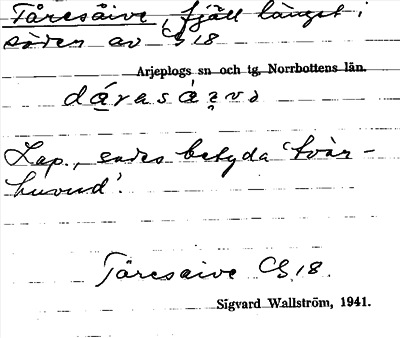 Tåresåive, fjäll längst i
söder av C G 18
Arjeplogs sn och tg, Norrbottens län.
Lap., sades betyda 'tvär-
huvud'.
Tåresaive C G 18.
Sigvard Wallström, 1941.